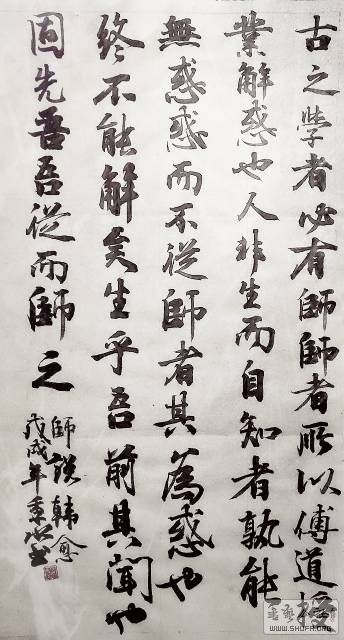 古之學者必有師師者所以傳道授
業解惑也人非生而自知者孰能
無惑惑而不從師者其為惑也
終不能解矣生乎吾前其聞也
固先吾吾從而師之
師說韓愈
戊戌年
WWW.SHUFA.ORG